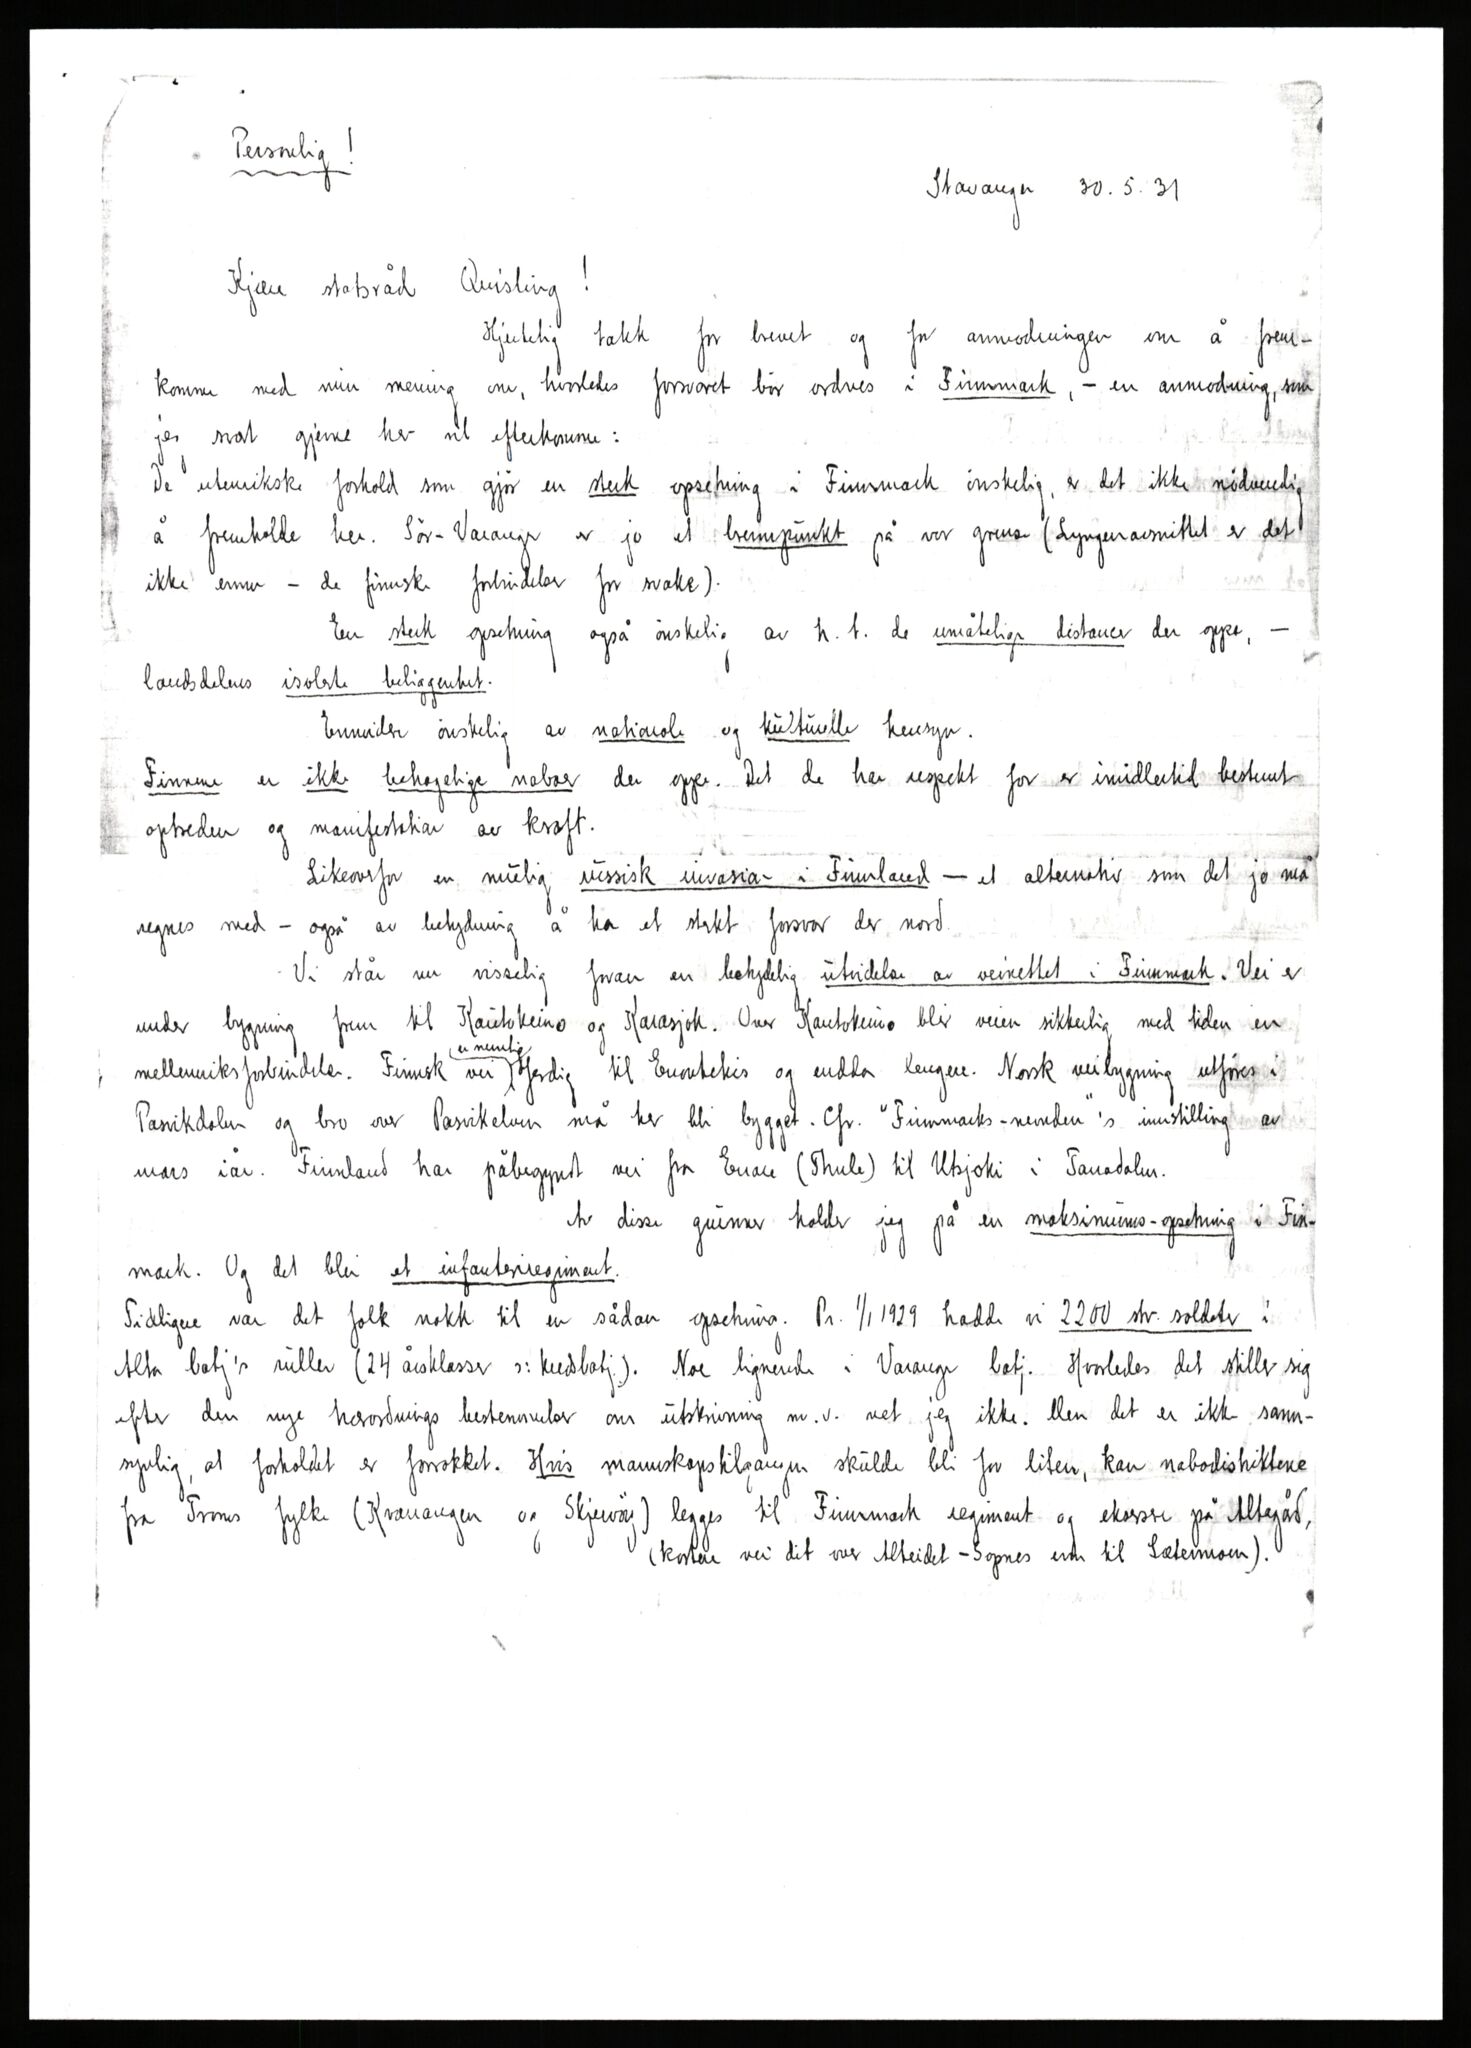 Personlig!
Stavanger 30.5.31
Kjære statsråd Quisling!
Hjertelig takk for brevet og for anmodningen om å frem-
komme med min mening om, hvorledes forsvaret bör ordnes i Finnmark, – en anmodning, som
jeg svært gjerne her vil efterkomme:
De utenrikske forhold som gjör en sterk opsetning i Finnmark önskelig, er det ikke nödvendig
å fremholde her. Sör-Varanger er jo et brennpunkt på vor grense (Lyngenavsnittet er det
ikke ennu – de finnske forbindelser for svake).
En sterk opsetning også önskelig av h.t. de umåtelige distancer der oppe, –
landsdelens isolerte beliggenhet.
Ennvidere önskelig av nationale og kulturelle hensyn.
Finnene er ikke behagelige naboer der oppe. Det de har respekt for er imidlertid bestemt
optreden og manifestation av kraft.
Likeoverfor en mulig russisk invasion i Finnland – et alternativ som det jo må
regnes med – også av betydning å ha et sterkt forsvar der nord.
Vi står nu visselig foran en betydelig utvidelse av veinettet i Finnmark. Vei er
under bygning frem til Kautokeino og Karasjok. Over Kautokeino blir veien sikkerlig med tiden en
mellemriksforbindelse. Finnsk vei er nemlig ferdig til Enontekis og endda lengere. Norsk veibygning utföres i
Pasvikdalen og bro over Pasvikelven må her bli bygget. Cfr. "Finnmarks-nevnden"'s innstilling av
mars iår. Finnland har påbegynt vei fra Enare (Thule) til Utsjoki i Tanadalen.
Av disse grunner holder jeg på en maksimums-opsetning i Fin-
mark. Og det blir et infanteriregiment.
Tidligere var det folk nokk til en sådan opsetning. Pr. 1/1 1929 hadde vi 2200 str. soldater i
Alta batj's ruller (24 årsklasser s: kredsbatj.). Noe lignende i Varanger batj. Hvorledes det stiller sig
efter den nye hærordnings bestemmelser om utskrivning m.v. vet jeg ikke. Men det er ikke sann-
synlig, at forholdet er forrykket. Hvis mannskapstilgangen skulde bli for liten, kan nabodistriktene
fra Troms fylke (Kvænangen og Skjervöy) legges til Finnmark regiment og eksersere på Altagård,
(kortere vei dit over Alteidet – Sopnes enn til Sætermoen).